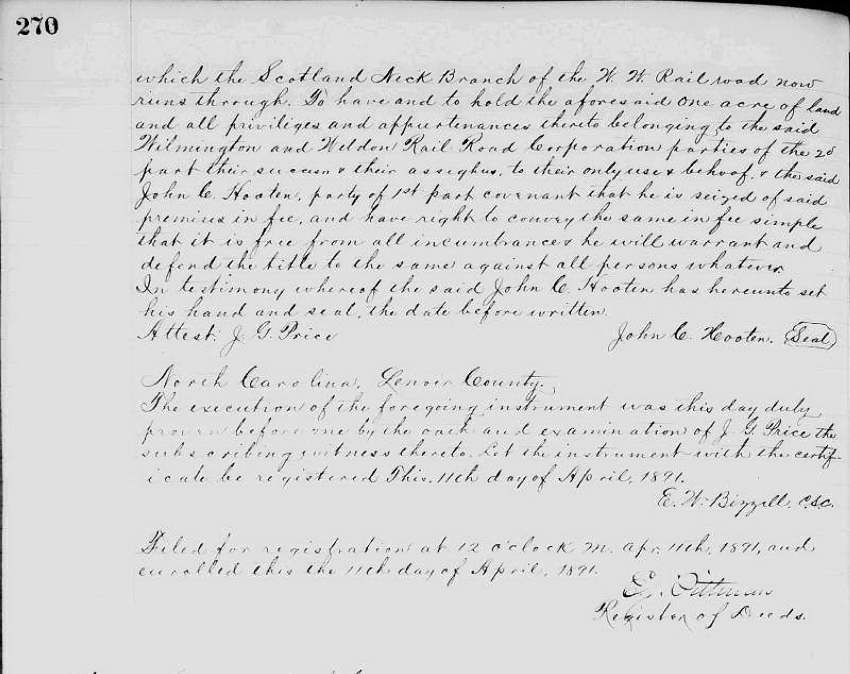 270
which the Scotland Neck Branch of the W. W. Rail road now
runs through. To have and to hold the aforesaid One acre of land
and all priviliges and appurtenances thereto belonging to the said
Wilmington and Weldon Rail Road Corporation parties of the 2d
part their succesn & their assighns, to their only use & behoof. & the said
John C. Hooten, party of 1st part covenant that he is seized of said
premises in fee, and have right to convey the same in fee simple
that it is free from all incumbrances he will warrant and
defend the title to the same against all persons whatever.
In testimony whereof the said John C Hooten has hereunto set
his hand and seal, the date before written.
Attest: J. G. Price John C. Hooten. Seal
North Carolina, Lenoir County.
The execution of the foregoing instrument was this day duly
proven before me by the oath and examination of J. G. Price the
subscribing witness thereto. Let the instrument with the certif-
icate be registered This, 11th day of April, 1891.
E. W. Bizzell, C.S.C.
Filed for registration at 12 o'clock M. Apr. 11th, 1891, and
enrolled this the 11th day of April, 1891.
Pittman
Register of Deeds.